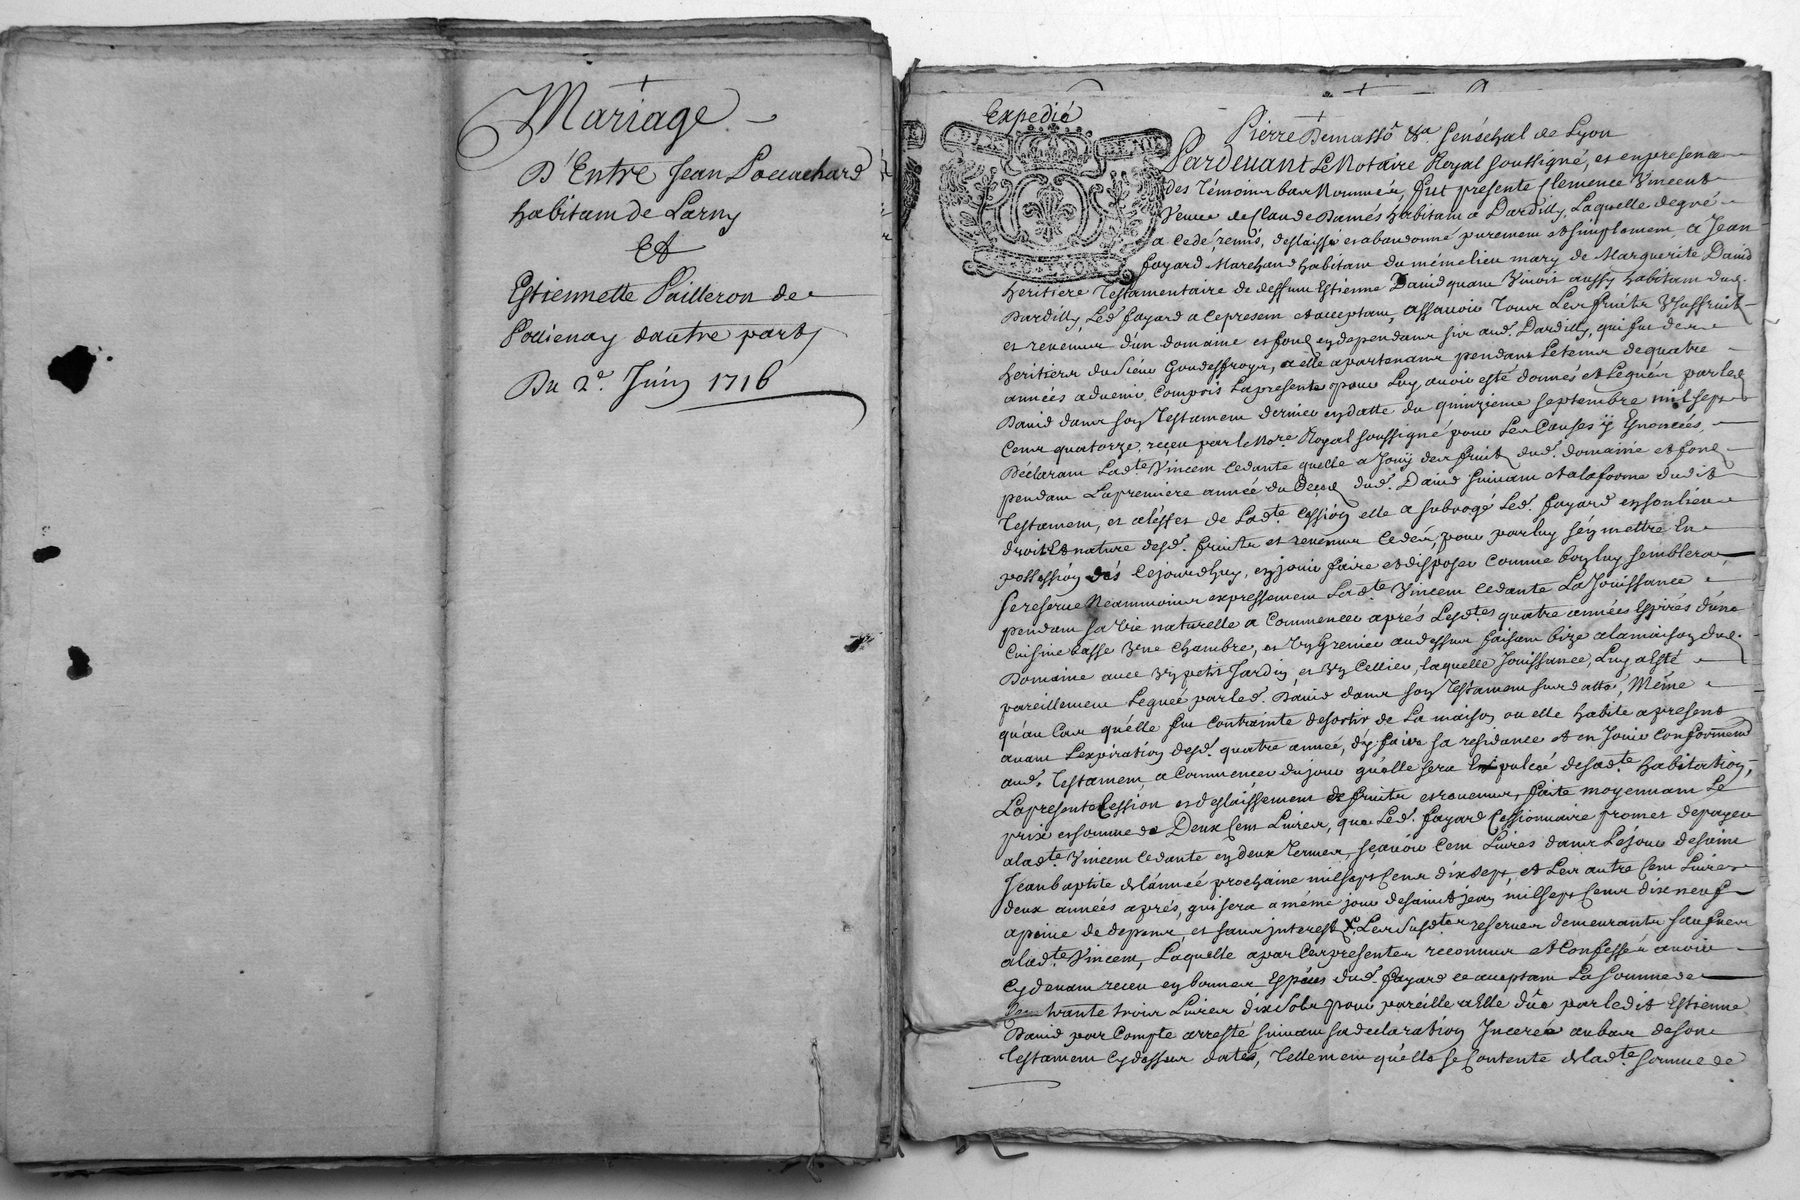 Mariage
D'Entre Jean
habitam de Larny
Et
Estiennette Pailleron de
Pollienay dautre part
Du 2e. Juin 1716
Expedié
Pierre Demassô &a Senéchal de Lyon
Pardevant Le Notaire Royal soussigné, et en presence
des témoins bas Nommés, fut presente Clemence Vincent
Veuve de Claude Damés habitam a Dardilly, Laquelle de gré
a cedé, remis, deslaissé et abandonné purement et simplement, a Jean
fayard Marchand habitam du méme lieu mary de Marguerite David
heritiere Testamentaire de deffunt Estienne David quam Vivoit aussy habitam dud.
Dardilly, Led. fayard a ce present et acceptam, assavoir Tous Les fruits Vsuffruits
et revenus d'un domaine et fond en dependans sis aud. Dardilly, qui fut des
heritiers du Sieur Goudeffroys, a elle apartenans pendant Le tems de quatre
années advenir, Compris La presente pour Luy avoir esté donnés et Legués par led.
David dans son Testament dernier en datte du quinzieme septembre mil sept
Cens quatorze, reçeu par le No.re Royal soussigné pour Les Causes ÿ Enoncées,
Déclaram Lad.te Vincem Cedante quelle a Jouÿ des fruits dud. domaine et fond
pendam La premiere année du Decés dud. David suivam et a la forme dudit
Testament, et a l'effet de Lad.te Cession elle a subrogé Led. fayard en son lieu
droit Et nature desd. fruits et revenus Cedés, pour par luy s'en mettre En
possession dés Cejourdhuy, en jouir faire et disposer Comme bon luy semblera,
se reserve Neammoins expressement Lad.te Vincem Cedante La Jouissance
pendam sa Vie naturelle a Commencer aprés Lesd.tes quatre années Expirés d'une
Cuisine basse Vne Chambre, et Vn Grenier au dessus faisam bize a la maison dud.
Domaine avec Vn petit Jardin, et Vn Cellier, laquelle Jouissance, Luy a Esté
pareillement Leguée par led. David dans son Testament sus datté, Méme
qu'au Cas quélle fut Contrainte de sortir de La maison ou elle habite a present
avam L'expiration desd. quatre année, d'ÿ faire sa residance et en Jouir Conformémend
aud. Testament, a Commencer du jour qu'elle sera Expulcée de sad.te habitation,
La presente Cession et deslaissement de fruits et revenus, faite moyennam Le
prix et somme de Deux Cens Livres, que Led. fayard Cessionnaire promet de payer
a lad.te Vincem Cedante en deux termes, sçavoir Cem Livres dans Le jour de saint
Jean baptite de l'année prochaine mil sept Cens dix sept, et Les autre Cem Livres
deux années aprés, qui sera a méme jour de saint jean mil sept Cens dix neuf
a peine de depens, et sans jnterest, Les susd.tes reserves demeurants sauf ver
a lad.te Vincem, Laquelle a par Ces presentes reconnu et Confessé avoir
Cy devam receu en bonnes Espéces dud. fayard ce acceptam La somme de
trante trois Livres dix sols pour pareille a Elle dûe par ledit Estienne
David par Compte arresté suivam sa declaration Jnceréé au bas de son
Testament Cy dessus datté, Tellement qu'elle se Contente de lad.te somme de